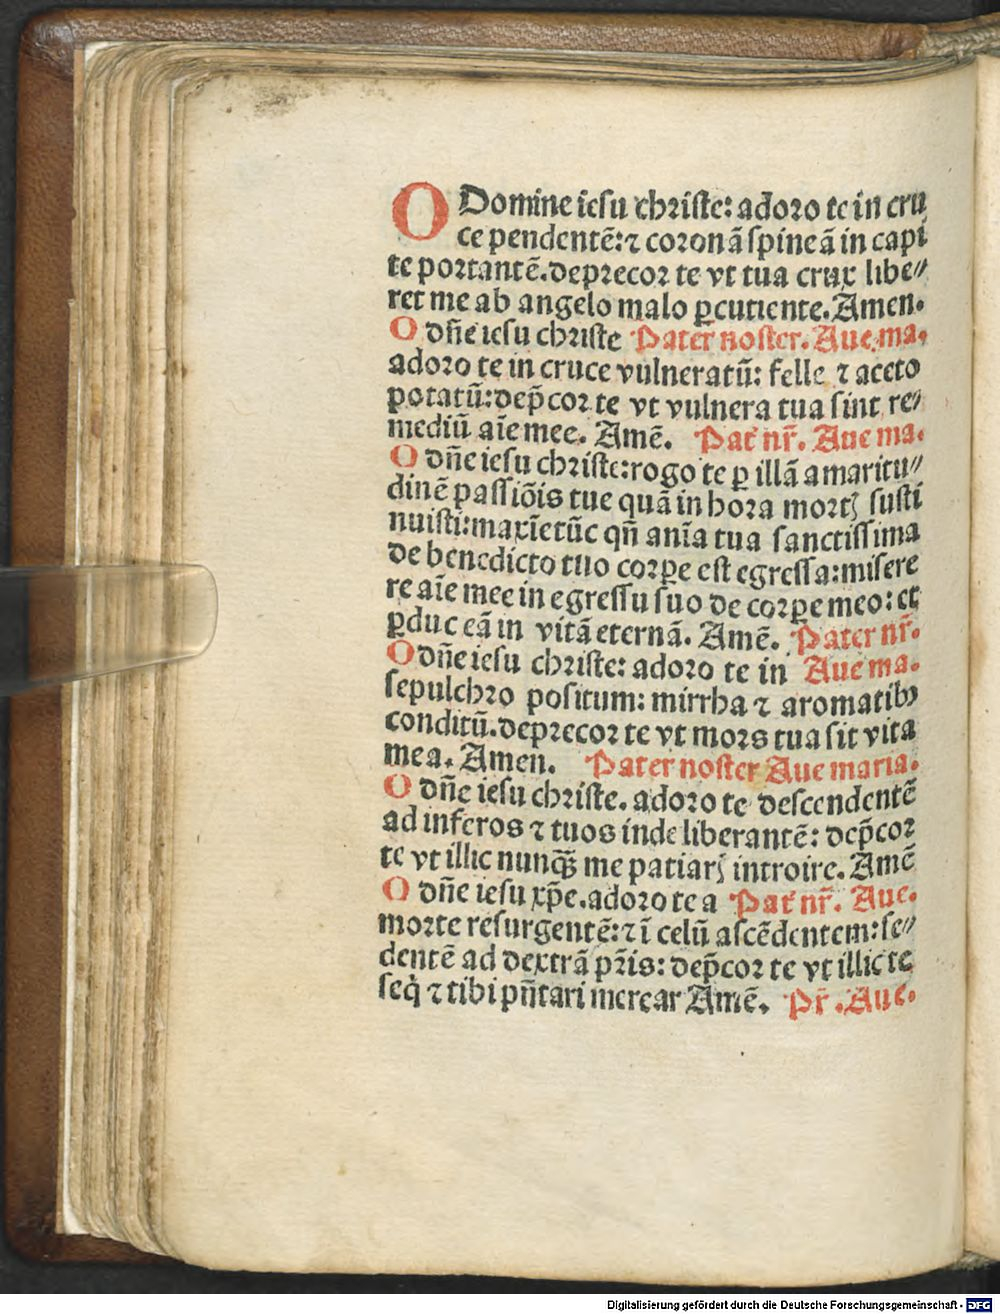 O Domine iesu christe: adoro te in cru
ce pendentē: ⁊ coronā spineā in capi
te portantē. deprecor te vt tua crux libe⸗
ret me ab angelo malo ꝑcutiente. Amen.
O dn̄e iesu christe Pater noster. Aue ma.
adoro te in cruce vulneratū: felle ⁊ aceto
potatū: dep̄cor te vt vulnera tua sint re⸗
mediū aīe mee. Amē. Pat̄ nr̄. Aue ma.
O dn̄e iesu christe: rogo te ꝑ illā amaritu⸗
dinē passiōis tue quā in hora mortꝭ susti
nuisti: maxīe tūc qn̄ anīa tua sanctissima
de benedicto tuo corꝑe est egressa: misere
re aīe mee in egressu suo de corꝑe meo: et
ꝑduc eā in vitā eternā. Amē. Pater nr̄.
O dn̄e iesu christe: adoro te in Aue ma.
sepulchro positum: mirrha ⁊ aromatibꝰ
conditū. deprecor te vt mors tua sit vita
mea. Amen. Pater noster Aue maria.
O dn̄e iesu christe. adoro te descendentē
ad inferos ⁊ tuos inde liberantē: dep̄cor
te vt illic nunq̄ꝫ me patiarꝭ introire. Amē
O dn̄e iesu xp̄e. adoro te a Pat̄ nr̄. Aue.
morte resurgentē: ⁊ ī celū ascēdentem: se⸗
dentē ad dextrā pr̄is: dep̄cor te vt illic te
seq̇ ⁊ tibi pn̄tari merear Amē. Pr̄. Aue.
Digitalisierung gefördert durch die Deutsche Forschungsgemeinschaft - DFG